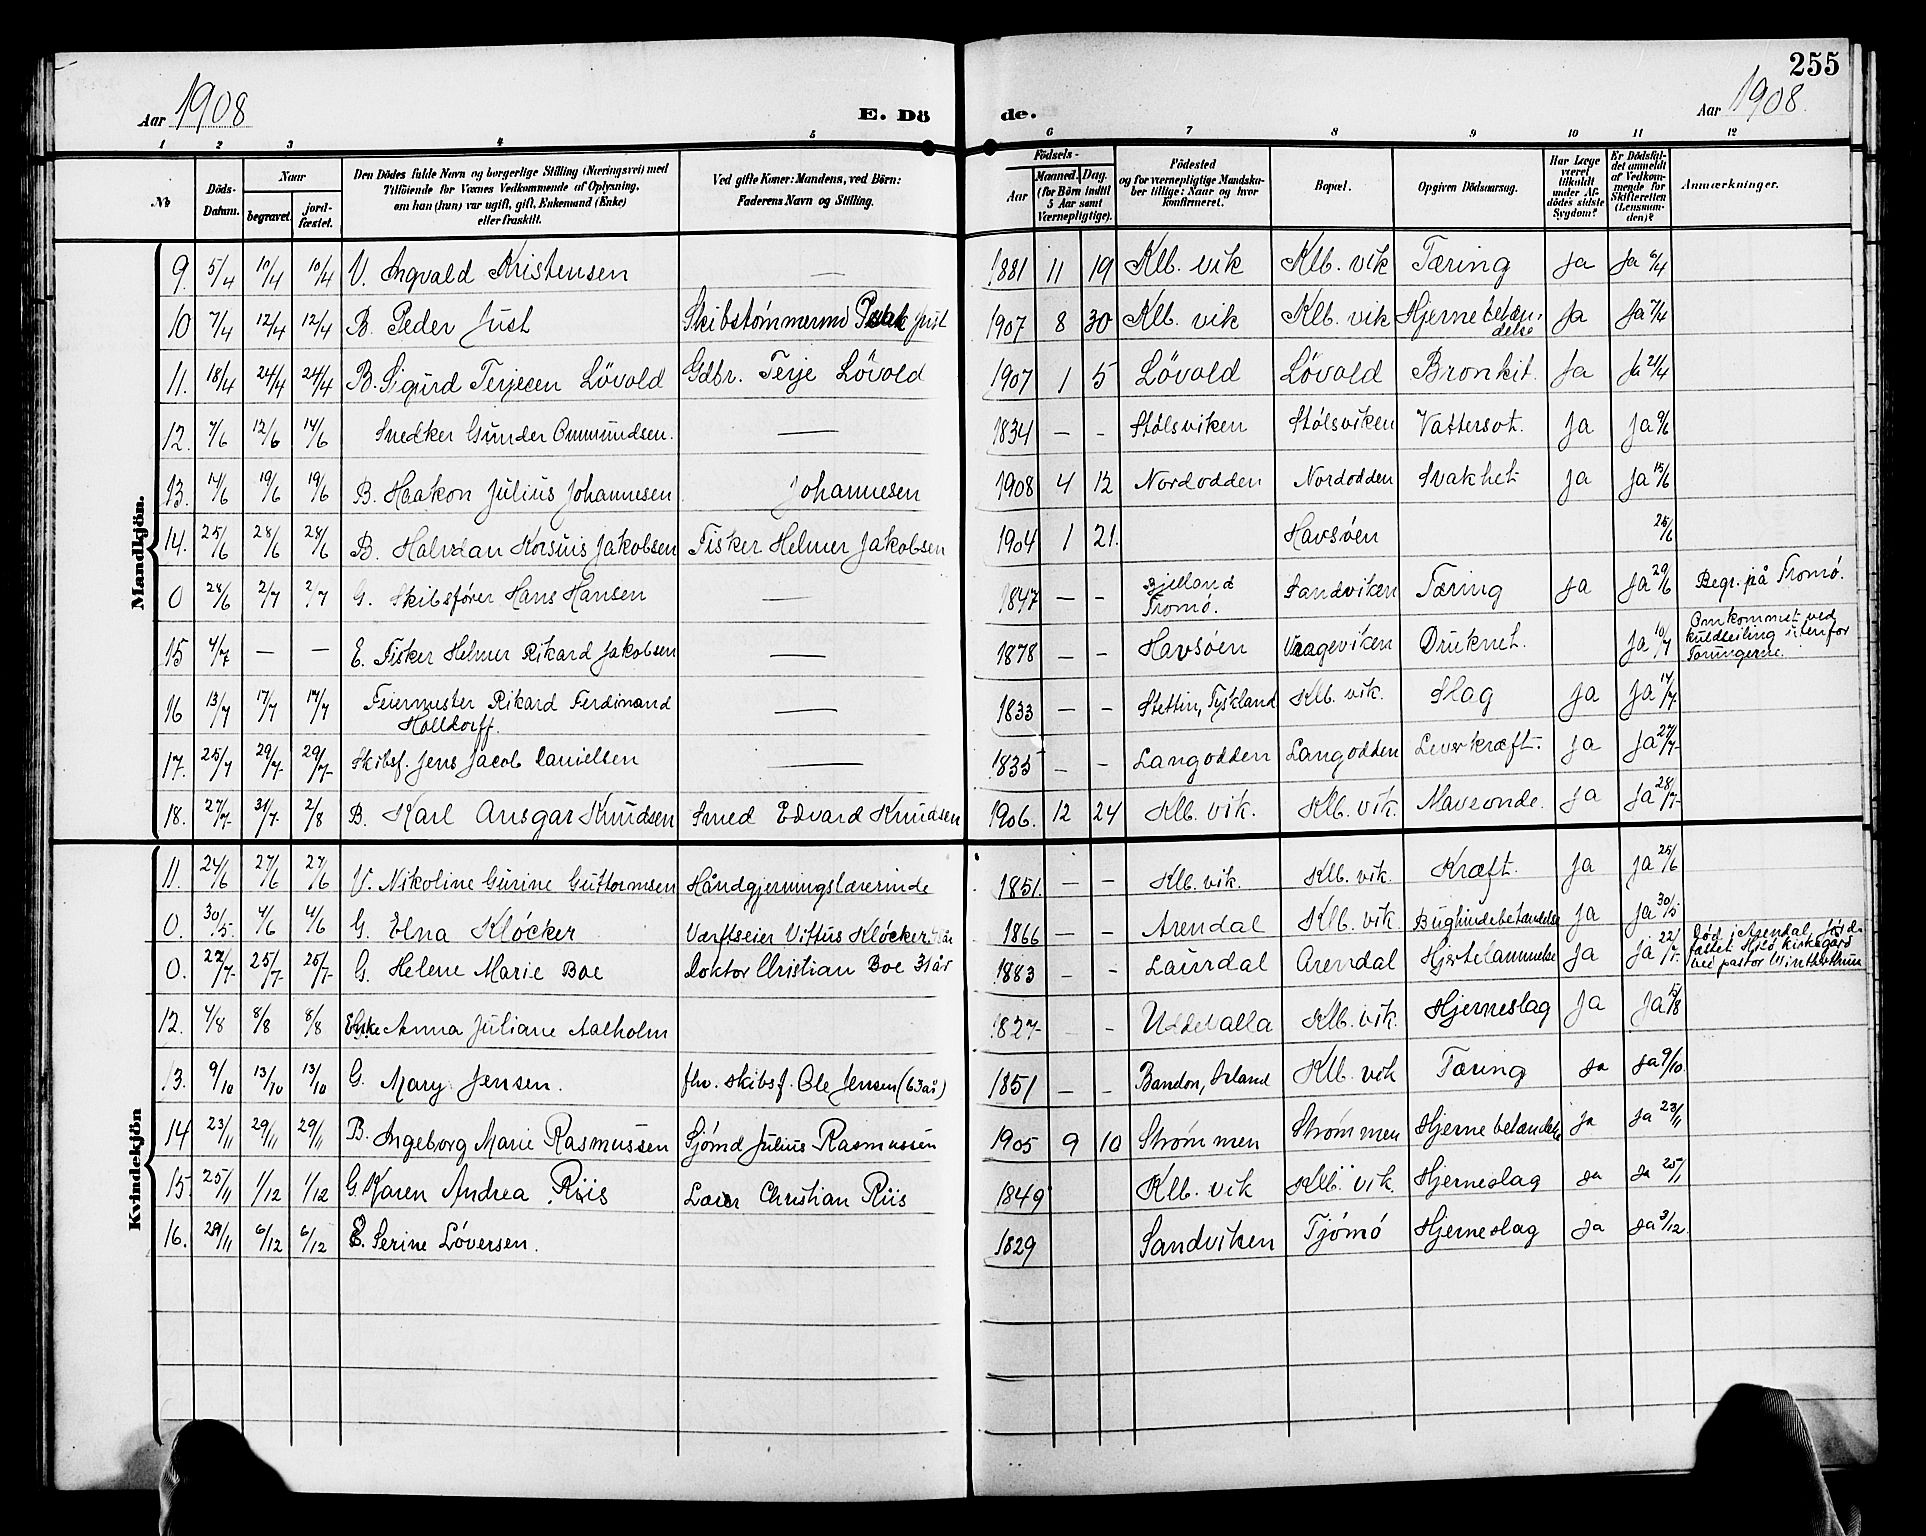 255
Aar 1908
E. Dö
de.
Aar 1908.
1 2 3 4 5 6 7 8 9 10 11 12
No
Döds-Datum.
Naar
begravet.
jord-fæstet.
Den Dödes fulde Navn og borgerlige Stilling (Næringsvei) med
Tilföiende for Voxnes Vedkommende af Oplysning,
om han (hun) var ugift, gift, Enkemand (Enke)
eller fraskilt.
Ved gifte Koner: Mandens, ved Börn:
Faderens Navn og Stilling.
Födsels-
Aar
Maaned. Dag.
(for Börn indtil
5 Aar samt
Værnepligtige).
Födested
og for værnepligtige Mandska-
ber tillige: Naar og hvor
konfirmeret.
Bopæl.
Opgiven Dödsaarsag.
Har Læge
været
tilkaldt
under Af-
dödes sidste
Sygdom?
Er Dödsfal-
det anmeldt
af Vedkom-
mende for
Skifteretten
(Lensman-
den)?
Anmærkninger.
Mandkjön.
9. 5/4 10/4 10/4 V. Ingvald Kristensen — 1881 11 19 Klb. vik Klb. vik Tæring Ja Ja 6/4
10 7/4 12/4 12/4 B. Peder Just Skibstømmermd Just 1907 8 30 Klb. vik Klb. vik Hjernebetæn-
delse Ja Ja 7/4
11. 18/4 24/4 24/4 B. Sigurd Terjesen Lövold Gdbr. Terje Lövold 1907 1 5 Lövold Lövold Bronkit. Ja Ja 21/4
12. 7/6 12/6 14/6 Snedker Gunder Ommundsen. — 1834 — - Stølsviken Stølsviken Vattersot. Ja Ja 9/6
13. 14/6 19/6 19/6 B. Haakon Julius Johannesen Johannesen 1908 4 12 Nordodden Nordodden Svakhet Ja Ja 15/6
14. 25/6 28/6 28/6 B. Halvdan Korsius Jakobsen Fisker Helmer Jakobsen 1904 1 21. Havsøen 25/6
0 28/6 2/7 2/7 G. Skibsfører Hans Hansen — 1847 — - Bjelland
Tromø. Sandviken Tæring Ja Ja 29/6 Begr. på Tromø.
15 4/7 — — E. Fisker Helmer Rikard Jakobsen — 1878 — - Havsøen Vrageviken Druknet. Ja 10/7 Omkommet ved
kuldseiling utenfor
Torungerne.
16 13/7 17/7 17/7 Feiermester Rikard Ferdinand
Holldorff. — 1833 — - Stettin, Tyskland Klb. vik. Slag Ja Ja 14/7.
17. 25/7 29/7 29/7 Skibsf. Jens Jacob Danielsen — 1835 — - Langodden Langodden Leverkræft. Ja Ja 27/7
18. 27/7 31/7 2/8 B. Karl Ansgar Knudsen Smed Edvard Knudsen 1906. 12 24 Klb. vik. Klb. vik. Maveonde. Ja Ja 28/7
Kvindekjön
11. 24/6 27/6 27/6 V. Nikoline Gurine Guttormsen Håndgjerningslærerinde 1851. — - Klb. vik. Klb. vik. Kræft. Ja Ja 25/6
0. 30/5. 4/6 4/6 G. Elna Kløcker Værftseier Vittus Kløcker 1866 — - Arendal Klb. vik Bughindebetændelse Ja Ja 30/5
0. 22/7 25/7 25/7 G. Helene Marie Boe Doktor Christian Boe 31 år 1883 - - Laurdal Arendal Hjertelammelse Ja Ja 22/7. Död i Arendal, jord-
fæstet Hisö kirkegård
ved pastor Winterthun
12. 4/8 8/8 8/8 Enke Anna Juliane Aalholm 1827 - - Uddevalla Klb. vik. Hjerneslag Ja Ja /8
13. 9/10 13/10 13/10 G. Mary Jensen. fhv. skibsf. Ole Jensen (63 år) 1851 — - Bandon, Irland Klb. vik Tæring Ja Ja 9/10.
14 23/11 29/11 29/11 B. Ingeborg Marie Rasmussen Sjömd Julius Rasmussen 1905 9 10 Strømmen Strømmen Hjernebetændelse Ja Ja 23/11
15. 25/11 1/12 1/12 G. Karen Andrea Riis Lærer Christian Riis 1849 Klb. vik Klb. vik. Hjerneslag Ja Ja 25/11
16. 29/11 6/12 6/12 E. Serine Löversen. 1829 Sandviken Tjömö Hjerneslag Ja Ja 3/12.